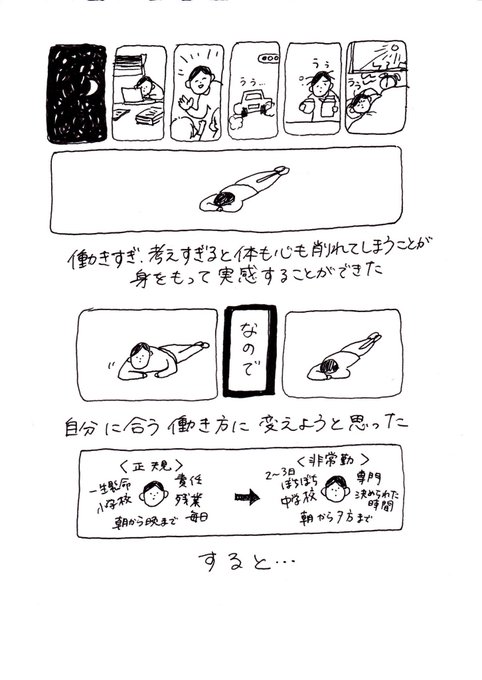 うぅ…
うぅ
うぅ〜
働きすぎ、考えすぎると体も心も削れてしまうことが
身をもって実感することができた
なので
自分に合う働き方に変えようと思った
<正規>
一生懸命
小学校
責任
残業
毎日
朝から晩まで
<非常勤>
2〜3日
ぼちぼち
中学校
専門
決められた
時間
朝から夕方まで
すると…